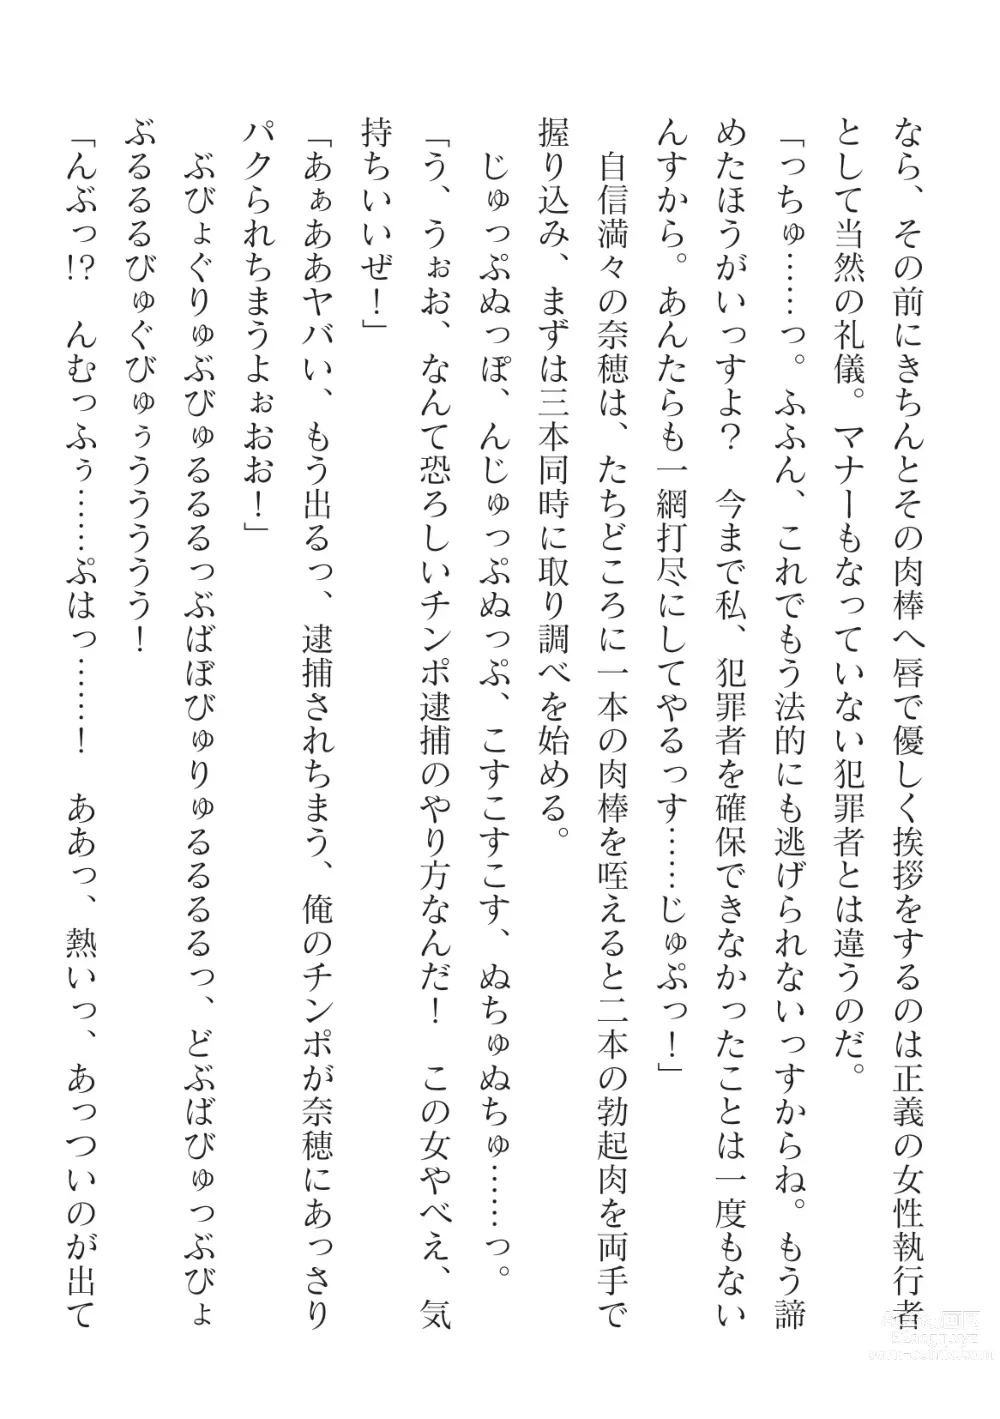 なら、その前にきちんとその肉棒へ唇で優しく挨拶をするのは正義の女性執行者
として当然の礼儀。マナーもなっていない犯罪者とは違うのだ。
「っちゅ……っ。ふふん、これでもう法的にも逃げられないっすからね。もう諦
めたほうがいっすよ？　今まで私、犯罪者を確保できなかったことは一度もない
んすから。あんたらも一網打尽にしてやるっす……じゅぷっ！」
　自信満々の奈穂は、たちどころに一本の肉棒を咥えると二本の勃起肉を両手で
握り込み、まずは三本同時に取り調べを始める。
　じゅっぷぬっぽ、んじゅっぷぬっぷ、こすこすこす、ぬちゅぬちゅ……っ。
「う、うぉお、なんて恐ろしいチンポ逮捕のやり方なんだ！　この女やべえ、気
持ちいいぜ！」
「あぁああヤバい、もう出るっ、逮捕されちまう、俺のチンポが奈穂にあっさり
パクられちまうよぉおお！」
　ぶびょぐりゅぶびゅるるるっぶばぼびゅりゅるるるっ、どぶばびゅっぶびょ
ぶるるるびゅぐびゅぅううううう！
「んぶっ!?　んむっふぅ……ぷはっ……！　ああっ、熱いっ、あっついのが出て